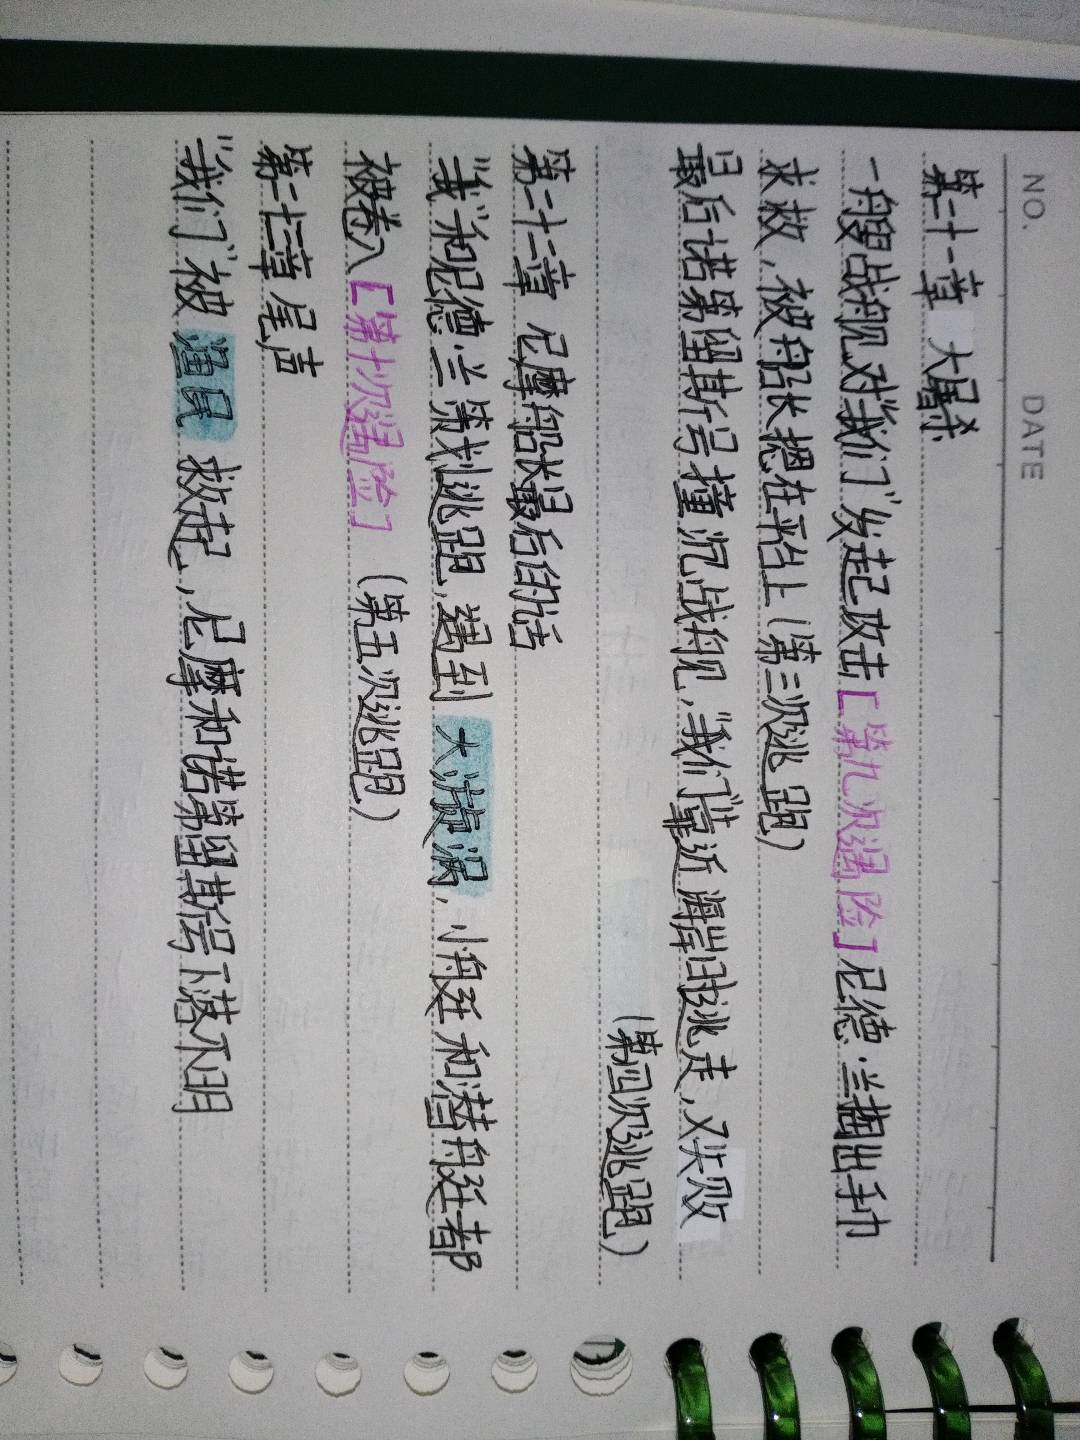 NO.
DATE
第二十一章 大屠杀
一艘战舰对"我们"发起攻击[第九次遇险]尼德·兰掏出手巾
求救,被船长摁在平台上(第三次逃跑)
最后诺第留斯号撞沉战舰,"我们"靠近海岸时逃走,又失败
(第四次逃跑)
第二十二章 尼摩船长最后的话
"我"和尼德·兰策划逃跑,遇到 大漩涡,小舟艇和潜舟艇都
被卷入[第十次遇险](第五次逃跑)
第二十三章 尾声
"我们"被 渔民 救起,尼摩和诺第留斯号下落不明